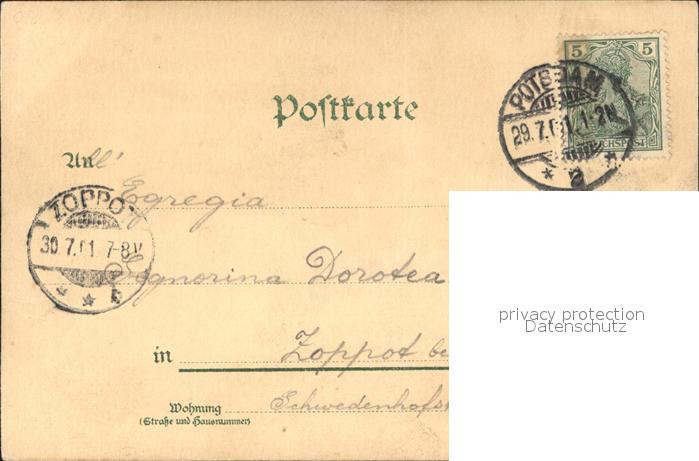 5 5
REICHSPOST
POTSDAM
29.7.01. 1-2N
a
Postkarte
An ll'
Egregia
ZOPPOT
30.7.01. 7-8V
Signorina Dorotea
privacy protection
Datenschutz
in Zoppot be
Wohnung Schwedenhofs
(Straße und Hausnummer)